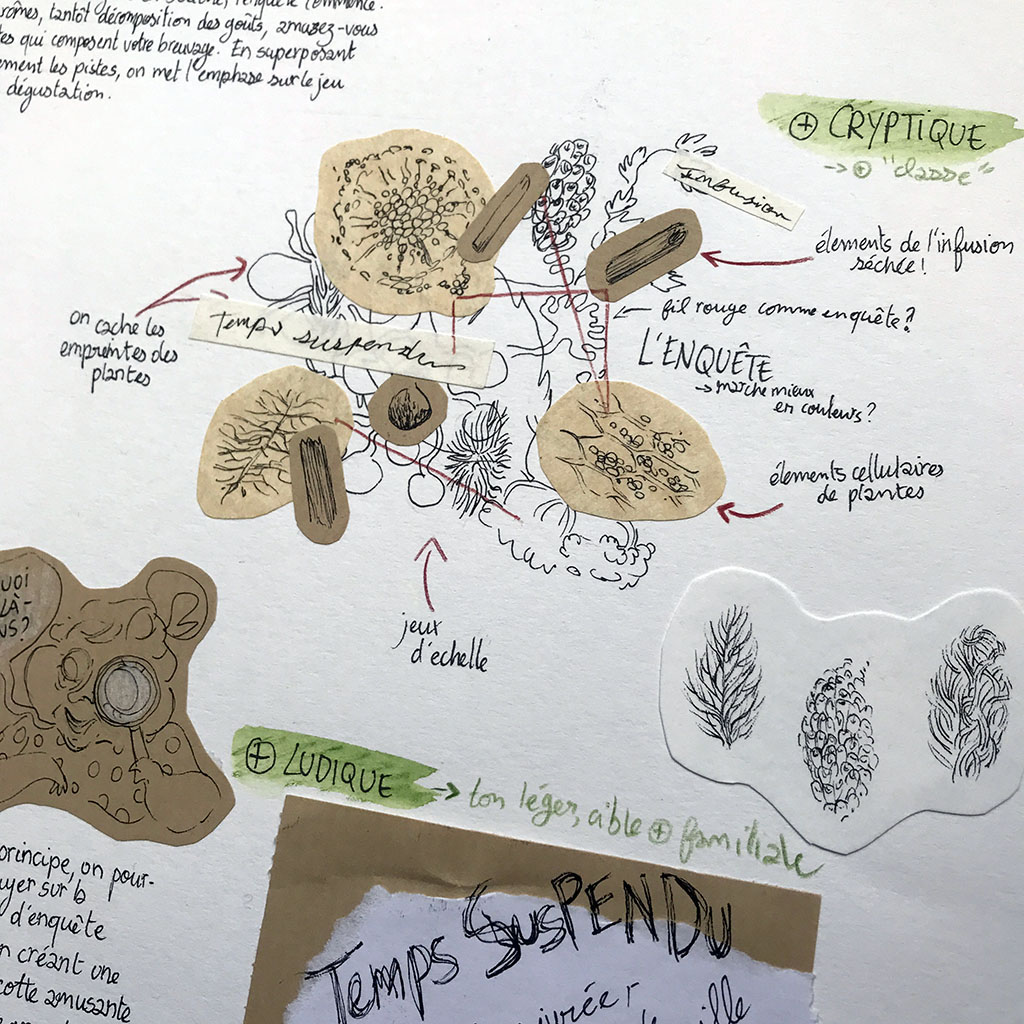 rômes, tantôt décomposition des goûts, amusez-vous
tes qui composent votre breuvage. En superposant
ement les pistes, on met l'emphase sur le jeu
dégustation.
⊕ CRYPTIQUE
→ ⊕ "classe"
Infusion
élements de l'infusion
séchée!
on cache les
empreintes des
plantes
Temps suspendu
← fil rouge comme enquête?
L'ENQUÊTE
→ marche mieux
en couleurs?
élements cellulaires
de plantes
jeux
d'échelle
UOI
LÀ-
NS?
⊕ LUDIQUE → ton léger, cible ⊕ familiale
principe, on pour-
uyer sur la
d'enquête
n créant une
cotte amusante
TEMPS SUSPENDU